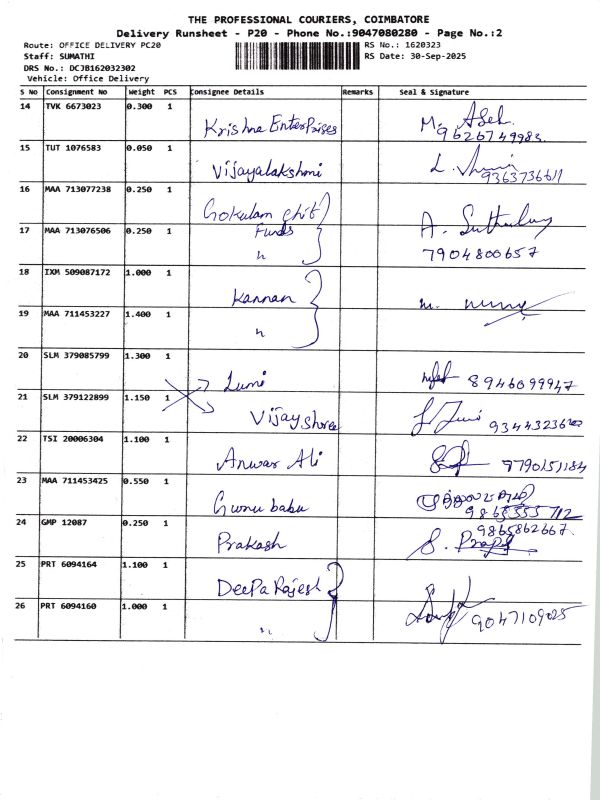 THE PROFESSIONAL COURIERS, COIMBATORE
Delivery Runsheet - P20 - Phone No.:9047080280 - Page No.:2
Route: OFFICE DELIVERY PC20 RS No.: 1620323
Staff: SUMATHI RS Date: 30-Sep-2025
DRS No.: DCJB162032302
Vehicle: Office Delivery
S No Consignment No Weight PCS Consignee Details Remarks Seal & Signature
14 TVK 6673023 0.300 1
Krishna Enterprises M.
9626749983
15 TUT 1076583 0.050 1
Vijayalakshmi L.
9363736611
16 MAA 713077238 0.250 1
Gokulam chit A.
17 MAA 713076506 0.250 1 Funds
" 7904800657
18 IXM 509087172 1.000 1
Kannan M.
19 MAA 711453227 1.400 1
"
20 SLM 379085799 1.300 1
Lumi 8946099947
21 SLM 379122899 1.150 1
Vijay Shree
22 TSI 20006304 1.100 1
Anwar Ali 9790151184
23 MAA 711453425 0.550 1
Gunu babu 9865555712
24 GMP 12087 0.250 1 9865862667
Prakash S.
25 PRT 6094164 1.100 1
DeePa Rajesh
26 PRT 6094160 1.000 1
" 9047109025